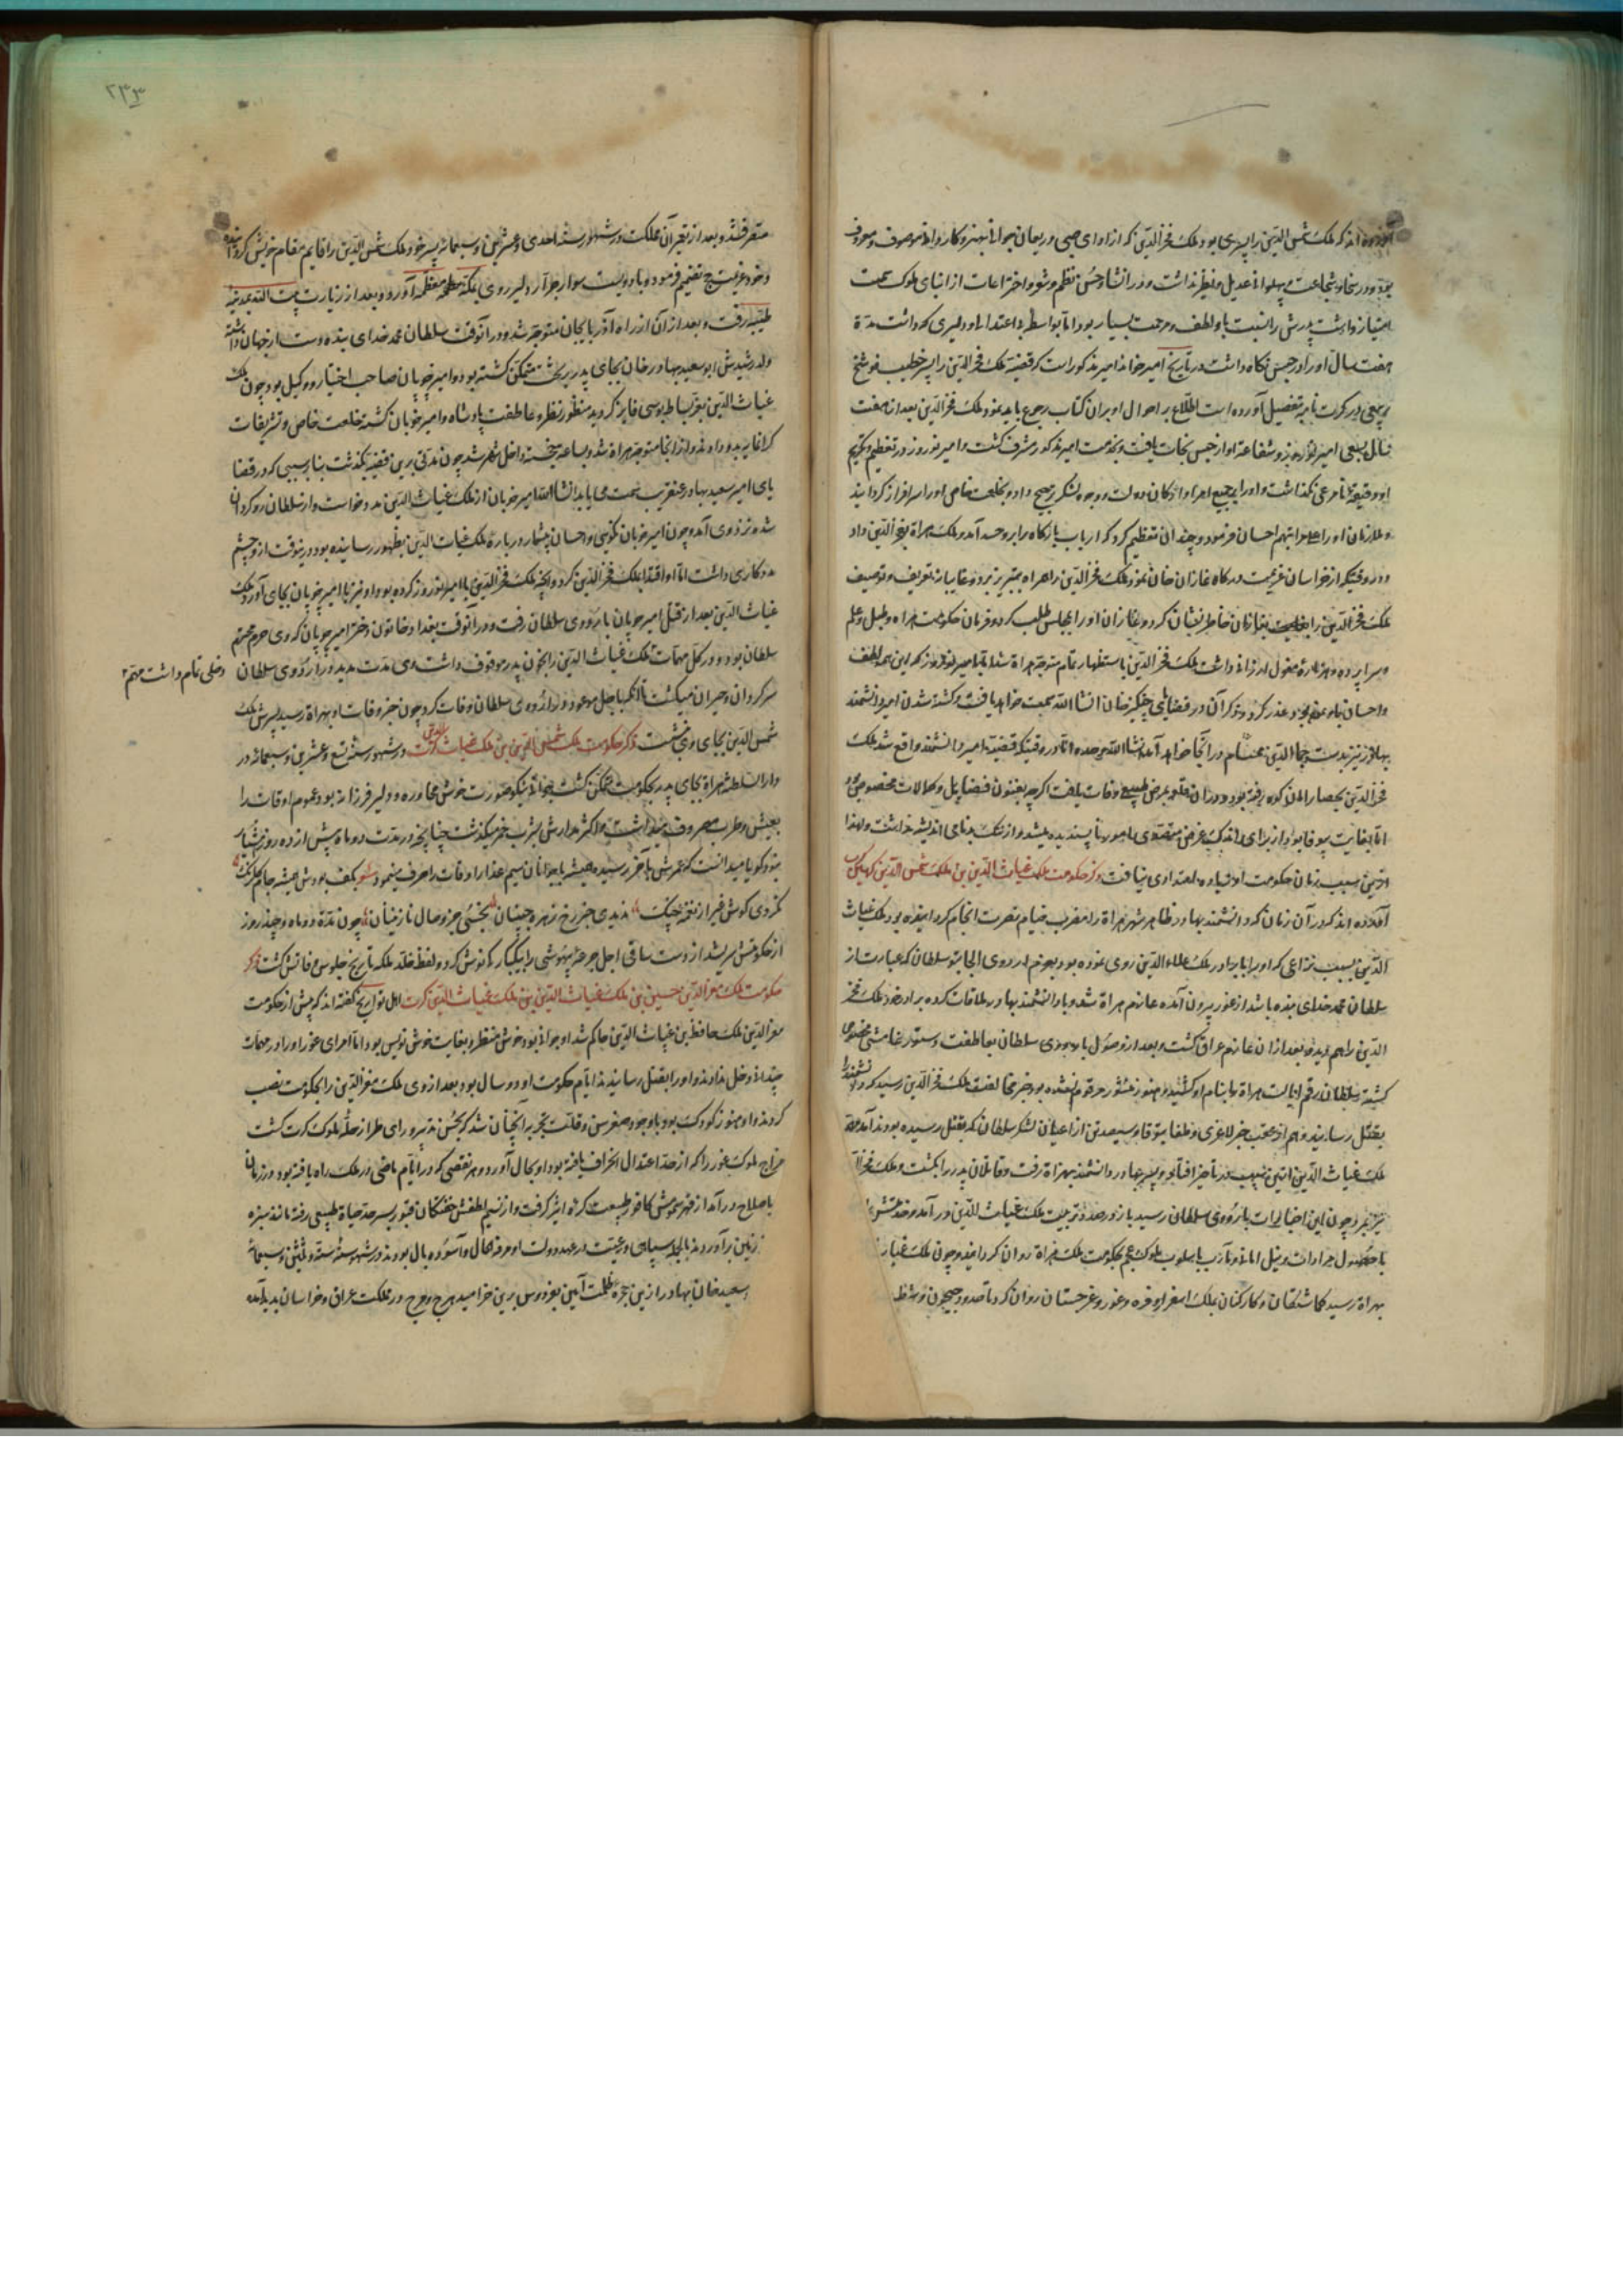 آورده اند که ملک شمس الدین را پسری بود ملک فخرالدین که از اوان صبی و ریعان جوانی بهنر و کاردانی موصوف و معروف
بود و در سخا و شجاعت و پهلوانی عدیل و نظیر نداشت و در انشا و حسن نظم و شعر و اختراعات از ابنای ملوک سمت
امتیاز داشت پدرش را نسبت باو لطف و مرحمت بسیار بود اما بواسطه اعتدا و دلیری که داشت مدة
هفت سال او را در حبس نگاه داشت در تاریخ امیر خواند امیر مذکور است که قضیه ملک فخرالدین را پسر خطیب فوشنج
ربیعی در کرت نامه بتفصیل آورده است اطلاع بر احوال او بران کتاب رجوع باید نمود و ملک فخرالدین بعد از هفت
سال بسعی امیر نوروز و شفاعة او از حبس نجات یافت و بخدمت امیر مذکور مشرف گشت و امیر نوروز در تعظیم و تکریم
او دقیقهٔ نامرعی نگذاشت و او را بر جمیع امرا و ارکان دولت و وجوه لشکر ترجیح داد و بخلعت خاص او را سرافراز گردانید
و ملازمان او را علی مراتبهم احسان فرمود و چندان تعظیم کرد که ارباب بارگاه را بر او حسد آمد و ملک هراة بفخرالدین داد
و در وقتیکه از خراسان عزیمت درگاه غازان خان نمود ملک فخرالدین را همراه به تبریز برد و غایبانه بتعریف و توصیف
ملک فخرالدین را غازان خاطر نشان کرد و غازان او را بمجلس طلب کرد و فرمان حکومت هراه و طبل و علم
و سراپرده و هزاره مغول ارزانی داشت ملک فخرالدین باستظهار تمام متوجه هراة شد اما با امیر نوروز که این همه لطف
و احسان باو نموده بود غدر کرد و ذکر آن در قضایای چنگیز خان انشاالله سمت خواهد یافت و کشته شدن امیر دانشمند
بهادر نیز بدست جمال الدین محمد سام در آنجا خواهد آمد انشاالله وحده اما در وقتیکه قضیه امیر دانشمند واقع شد ملک
فخرالدین بحصار امان کوه رفته بود و در ان قلعه بمرض طبیعی وفات یافت اگرچه بفنون فضایل و کمالات مخصوص بود
اما بغایت بیوفا بود و از برای اندک غرض متصدی امور ناپسندیده میشد و از ننگ و بدنامی اندیشه نداشت و لهذا
ازین سبب زمان حکومت او زیاده امتدادی نیافت ذکر حکومت ملک غیاث الدین بن ملک شمس الدین کهین کرت
آورده اند که در آن زمان که دانشمند بهادر ظاهر شهر هراة را مضرب خیام نصرت انجام گردانیده بود ملک غیاث
الدین بسبب نزاعی که او را با برادر ملک علاءالدین روی نموده بود بعزم اردوی الجایتو سلطان که عبارت از
سلطان محمد خدای بنده باشد از غور بیرون آمده عازم هراة شد و با دانشمند بهادر ملاقات کرده برادر خود ملک فخر
الدین را هم دیده بعد ازان عازم عراق گشت و بعد از وصول باردوی سلطان بعاطفت و سیورغامیشی مخصوص
گشته سلطان رقم ایالت هراة بنام او کشید و هنوز منشور مرقوم نشده بود خبر مخالفت ملک فخرالدین رسید که دانشمند را
بقتل رسانید و هم از عقب خبر لاغری و طغا بیتوقا و سیصد تن از اعیان لشکر سلطان که بقتل رسیده بودند آمد و مهم
ملک غیاث الدین ازین سبب در تاخیر افتاد و پسر بهادر دانشمند بهراة رفت و قاتلان پدر را بکشت و ملک فخرال
نیز بمرد چون این اخبارات باردوی سلطان رسید باز در صدد تربیت ملک غیاث الدین در آمد و خدمتش را
با حصول مرادات و نیل امانی و مآرب باسلوب ملوک عجم بحکومت ملک هراة روان گردانید و چون ملک غیاث
بهراة رسید گماشتگان و کارکنان بملک اسفزار و فره و غور و غرجستان روان کرد تا حدود جیحون و شط
۲۳۳
متصرف شد و بعد از تعمیر آن مملکت در شهور سنه احدی و عشرین و سبعمائه پسر خود ملک شمس الدین را قایم مقام خویش گردانیده
و خود عزیمت حج تصمیم فرمود و با دویست سوار جرار دلیر روی بمکه معظمه آورد و بعد از زیارت بیت الله بمدینه
طیبه رفت و بعد از آن از راه آذربایجان متوجه شد و در آنوقت سلطان محمد خدای بنده دست از جهان داشته
ولد رشیدش ابوسعید بهادر خان بجای پدر بر تخت متمکن گشته بود و امیر چوپان صاحب اختیار و وکیل بود چون ملک
غیاث الدین بعز بساط بوسی فایز گردید منظور نظر و عاطفت پادشاه و امیر چوپان گشته خلعت خاص و تشریفات
گرانمایه بدو دادند و از انجا متوجه هراة شد و بساعت خجسته داخل شهر شد چون مدتی برین قضیه بگذشت بنا بر سببی که در قضا
یای امیر سعید بهادر عنقریب سمت می یابد انشاالله امیر چوپان از ملک غیاث الدین مدد خواست و از سلطان روگردان
شده نزد وی آمد و چون امیر چوپان نکویی و احسان بیشمار درباره ملک غیاث الدین بظهور رسانیده بود درینوقت از وچشم
مددکاری داشت اما او اقتدا بملک فخرالدین کرد و آنچه ملک فخرالدین با امیر نوروز کرده بود او نیز با امیر چوپان بجای آورد ملک
غیاث الدین بعد از قتل امیر چوپان باردوی سلطان رفت و در آنوقت بغداد خاتون دختر امیر چوپان که وی حرم محترم
سلطان بود و در کل مهمات ملک غیاث الدین را بخون پدر موقوف داشت وی مدت مدید در اردوی سلطان
دخلی تمام داشت مهم
سرگردان و حیران میگشت تا آنکه باجل موعود در اردوی سلطان وفات کرد چون خبر وفات او بهراة رسید پسرش ملک
شمس الدین بجای وی نشست ذکر حکومت ملک شمس الدین بن ملک غیاث الدین کرت در شهور سنه تسع و عشرین و سبعمائه در
دارالسلطنه هراة بجای پدر بحکومت متمکن گشت جوانی نیکو صورت خوش محاوره و دلیر فرزانه بود عموم اوقات را
بعیش و طرب مصروف میداشت و اکثر مدارش بشرب خمر میگذشت چنانچه در مدت دو ماه بیش از ده روز هشیار
نبود گویا میدانست که عمرش بآخر رسیده همیشه با جوانان سیم عذار اوقات را صرف مینمود شعر بکف بودش همیشه جام گلرنگ
نکردی گوش غیر از نغمه چنک ندیدی جز رخ زهره جبینان نجستی جز وصال نازنینان چون مدة دو ماه و چند روز
از حکومتش سر شد از دست ساقی اجل جرعه بیهوشی را بیکبارکی نوش کرد و لفظ خلد ملکه تاریخ جلوس و فاتش گشت ذکر
حکومت ملک معزالدین حسین بن ملک غیاث الدین بن ملک غیاث الدین کرت اهل تواریخ گفته اند که پیش از حکومت
معزالدین ملک حافظ بن غیاث الدین حاکم شد او جوانی بود خوش منظر و بغایت خوش نویس بود اما امرای غور او را در مهمات
چندان دخل ندادند و او را بقتل رسانیدند ایام حکومت او دو سال بود بعد از وی ملک معزالدین را بحکومت نصب
کردند و او هنوز کودک بود با وجود صغر سن و قلت تجربه آنچنان شد که بحسن تدبیر و رای طراز حلهٔ ملوک کرت گشت
مزاج ملوک غور را که از حد اعتدال انحراف یافته بود او بحال آورد و هر نقصی که در ایام ماضی در ملک راه یافته بود در زمان
باصلاح درآمد از قهر سموش کافور طبیعت کرد و اثر گرفت و از نسیم لطفش خفتگان قبور بسر حد حیاة طبیعی رفته مانند سبزه
ززمین برآوردند بالجمله سپاهی و رعیت در عهد دولت او مرفه الحال و آسوده بال بودند و در شهور سنه ستة و ثلثین و سبعمائه
سعید خان بهادر ازین حجره ظلمت آیین بفردوس برین خرامید هرج و مرج در مملکت عراق و خراسان پدید آمد